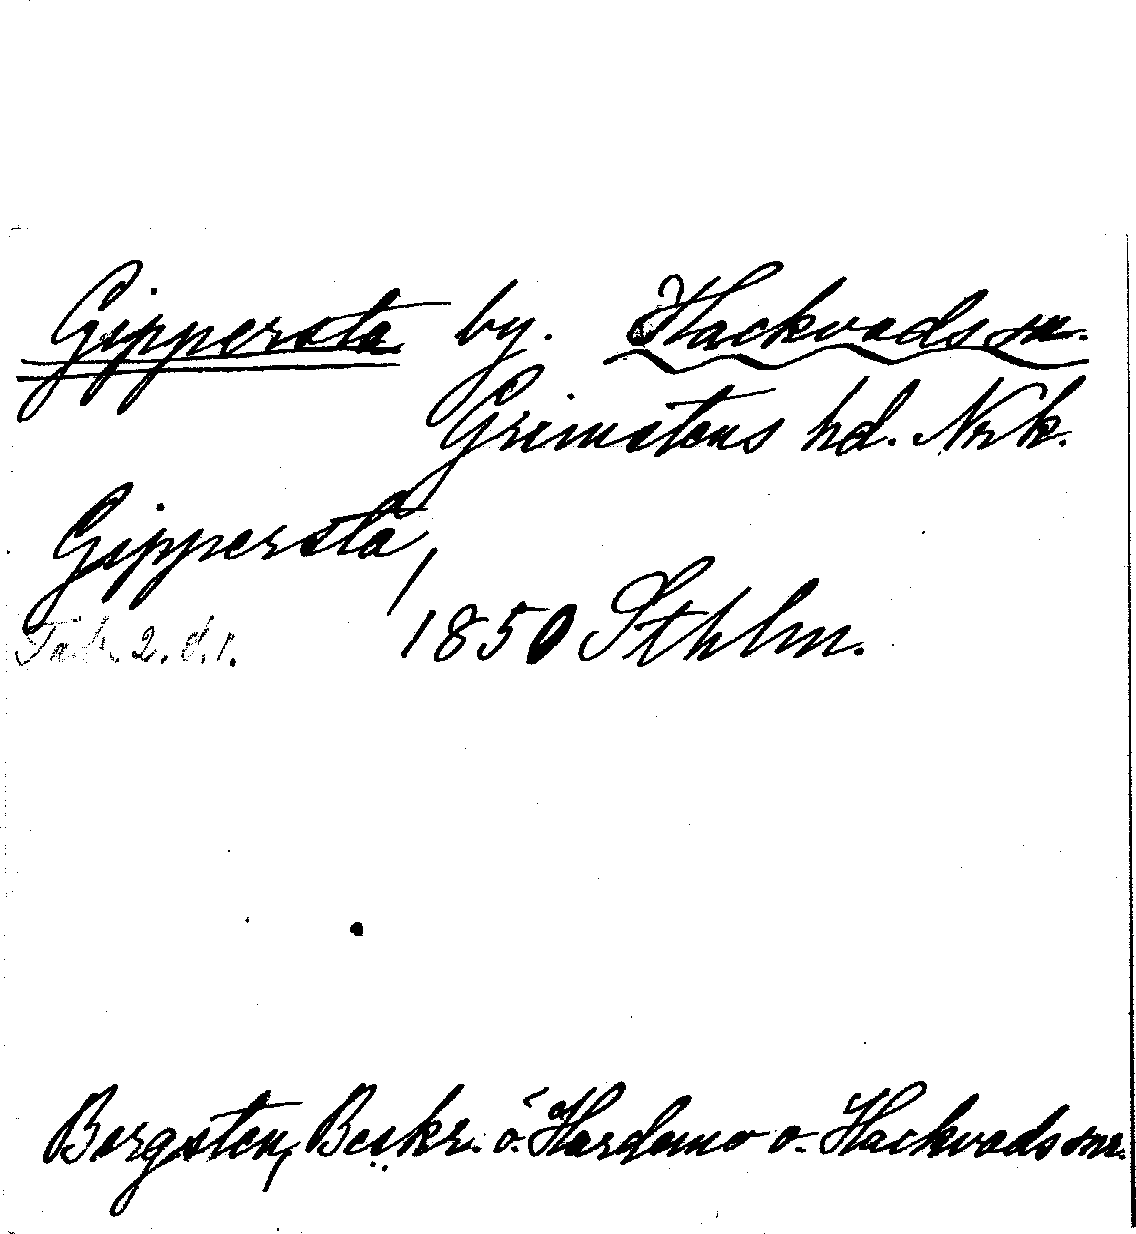 Gippersta by. Hackvads sn.
Grimstens hd. Nrk.
Gippersta,
1850 Sthlm.
Bergsten, Beskr. ö. Hardemo o. Hackvads snr.